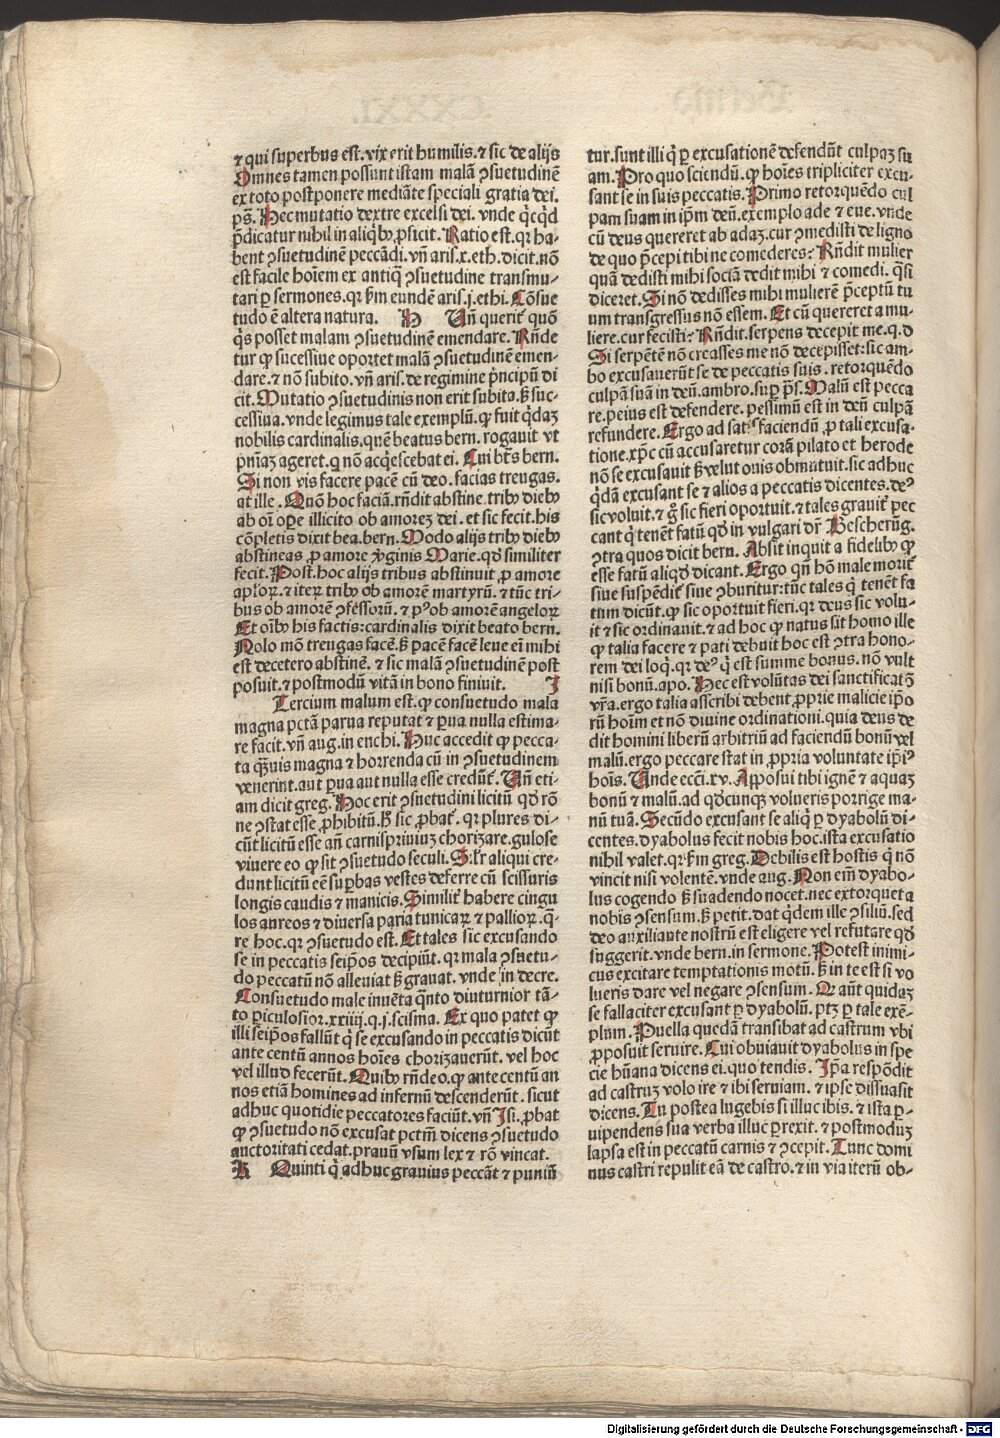 ⁊ qui superbus est. vix erit humilis. ⁊ sic de alijs
Omnes tamen possunt istam malā ꝯsuetudinē
ex toto postponere mediāte speciali gratia dei.
ps̄. Hec mutatio dextre excelsi dei. vnde qͥcqͥd
p̄dicatur nihil in aliqͥbꝰ ꝓficit. Ratio est. qꝛ ha-
bent ꝯsuetudinē peccādi. vn̄ aris. x. eth. dicit. nō
est facile hoīem ex antiqͣ ꝯsuetudine transmu-
tari ꝑ sermones. qꝛ ẜm eundē aris. j. ethi. Cōsue
tudo ē altera natura. H Un̄ querit̄ quō
qͥs posset malam ꝯsuetudinē emendare. Rn̄de
tur ꝙ successiue oportet malā ꝯsuetudinē emen-
dare. ⁊ nō subito. vn̄ aris. de regimine pͥncipū di
cit. Mutatio ꝯsuetudinis non erit subita. ẜ suc-
cessiua. vnde legimus tale exemplū. ꝙ fuit qͥdaꝫ
nobilis cardinalis. quē beatus bern. rogauit vt
pn̄iaꝫ ageret. qͥ nō acqͥescebat ei. Cui bt̄s bern.
Si non vis facere pacē cū deo. facias treugas.
at ille. Quō hoc faciā. rn̄dit abstine tribꝰ diebꝰ
ab oī oꝑe illicito ob amoreꝫ dei. et sic fecit. his
cōpletis dixit bea. bern. Modo alijs tribꝰ diebꝰ
abstineas ꝓ amore v̓ginis Marie. qd̄ similiter
fecit. Post. hoc alijs tribus abstinuit ꝓ amore
aploꝝ. ⁊ iteꝝ tribꝰ ob amorē martyrū. ⁊ tūc tri-
bus ob amorē ꝯfessorū. ⁊ pꝰ ob amorē angeloꝝ
Et oībꝰ his factis: cardinalis dixit beato bern.
Nolo mō treugas facē. ẜ pacē facē leue eī mihi
est decetero abstinē. ⁊ sic malā ꝯsuetudinē post
posuit. ⁊ postmodū vitā in bono finiuit. J
Tercium malum est. ꝙ consuetudo mala
magna pctā parua reputat ⁊ ꝑua nulla estima-
re facit. vn̄ aug. in enchi. Huc accedit ꝙ pecca-
ta qͣuis magna ⁊ horrenda cū in ꝯsuetudinem
venerint. aut ꝑua aut nulla esse credūt̄. Un̄ eti-
am dicit greg. Hoc erit ꝯsuetudini licitū qd̄ rō
ne ꝯstat esse ꝓhibitū. H̄ sic ꝓbat̄. qꝛ plures di-
cūt licitū esse an̄ carnispriuiuꝫ chorizare. gulose
viuere eo ꝙ sit ꝯsuetudo seculi. Sil̓r aliqui cre-
dunt licitū eē suꝑbas vestes deferre cū scissuris
longis caudis ⁊ manicis. Similit̄ habere cingu
los aureos ⁊ diuersa paria tunicaꝝ ⁊ pallioꝝ. qͣ-
re hoc. qꝛ ꝯsuetudo est. Et tales sic excusando
se in peccatis seip̄os decipiūt. qꝛ mala ꝯsuetu-
do peccatū nō alleuiat ẜ grauat. vnde in decre.
Consuetudo male inuēta qͣnto diuturnior tā-
to ꝑiculosior. xxiiij. q. j. scisma. Ex quo patet ꝙ
illi seip̄os fallūt qͥ se excusando in peccatis dicūt
ante centū annos hoīes chorizauerūt. vel hoc
vel illud fecerūt. Quibꝰ rn̄deo. ꝙ ante centū an
nos etiā homines ad infernū descenderūt. sicut
adhuc quotidie peccatores faciūt. vn̄ Isi. ꝓbat
ꝙ ꝯsuetudo nō excusat pctm̄ dicens ꝯsuetudo
auctoritati cedat. prauū vsum lex ⁊ rō vincat.
K Quinti qͥ adhuc grauius peccāt ⁊ puniū
tur. sunt illi qͥ ꝑ excusationē defendūt culpaꝫ su
am. Pro quo sciendū. ꝙ hoīes tripliciter excu-
sant se in suis peccatis. Primo retorquēdo cul
pam suam in ip̄m deū. exemplo ade ⁊ eue. vnde
cū deus quereret ab adaꝫ. cur ꝯmedisti de ligno
de quo p̄cepi tibi ne comederes? Rn̄dit mulier
quā dedisti mihi sociā dedit mihi ⁊ comedi. qͣsi
diceret. Si nō dedisses mihi mulierē p̄ceptū tu
um transgressus nō essem. Et cū quereret a mu-
liere. cur fecisti? Rn̄dit. serpens decepit me. q. d
Si serpētē nō creasses me nō decepisset: sic am-
bo excusauerūt se de peccatis suis. retorquēdo
culpā suā in deū. ambro. suꝑ ps̄. Malū est pecca
re. peius est defendere. pessimū est in deū culpā
refundere. Ergo ad satiſfaciendū ꝓ tali excusa-
tione. xp̄c cū accusaretur corā pilato et herode
nō se excusauit ẜ velut ouis obmutuit. sic adhuc
qͥdā excusant se ⁊ alios a peccatis dicentes. deꝰ
sic voluit. ⁊ gͦ sic fieri oportuit. ⁊ tales grauit̄ pec
cant qͥ tenēt fatū qd̄ in vulgari dr̄ Bescherūg.
ꝯtra quos dicit bern. Absit inquit a fidelibꝰ ꝙ
esse fatū aliqd̄ dicant. Ergo qn̄ hō male morit̄
siue suspēdit̄ siue ꝯburitur: tūc tales qͥ tenēt fa
tum dicūt. ꝙ sic oportuit fieri. qꝛ deus sic volu-
it ⁊ sic ordinauit. ⁊ ad hoc ꝙ natus sit homo ille
ꝙ talia facere ⁊ pati debuit hoc est ꝯtra hono-
rem dei loqͥ. qꝛ deꝰ qͥ est summe bonus. nō vult
nisi bonū. apo. Hec est volūtas dei sanctificatō
vr̄a. ergo talia ascribi debent ꝓprie malicie ip̄o
rū hoīm et nō diuine ordinationi. quia deus de
dit homini liberū arbitriū ad faciendū bonū vel
malū. ergo peccare stat in ꝓpria voluntate ip̄iꝰ
hoīs. Unde ecci. xv. Apposui tibi ignē ⁊ aquaꝫ
bonū ⁊ malū. ad qd̄cunqꝫ volueris porrige ma-
nū tuā. Secūdo excusant se aliqͥ ꝑ dyabolū di-
centes. dyabolus fecit nobis hoc. ista excusatio
nihil valet. qꝛ ẜm greg. Debilis est hostis qͥ nō
vincit nisi volentē. vnde aug. Non em̄ dyabo-
lus cogendo ẜ suadendo nocet. nec extorquet a
nobis ꝯsensum. ẜ petit. dat qͥdem ille ꝯsiliū. sed
deo auxiliante nostrū est eligere vel refutare qd̄
suggerit. vnde bern. in sermone. Potest inimi-
cus excitare temptationis motū. ẜ in te est si vo
lueris dare vel negare ꝯsensum. Qꝛ aūt quidaꝫ
se fallaciter excusant ꝑ dyabolū. ptꝫ ꝑ tale exē-
plum. Puella quedā transibat ad castrum vbi
ꝓposuit seruire. Cui obuiauit dyabolus in spe
cie hūana dicens ei. quo tendis. Ip̄a respōdit
ad castruꝫ volo ire ⁊ ibi seruiam. ⁊ ipse dissuasit
dicens. Tu postea lugebis si illuc ibis. ⁊ ista ꝑ-
uipendens sua verba illuc ꝑrexit. ⁊ postmoduꝫ
lapsa est in peccatū carnis ⁊ ꝯcepit. Tunc domi
nus castri repulit eā de castro. ⁊ in via iterū ob-
Digitalisierung gefördert durch die Deutsche Forschungsgemeinschaft - DFG